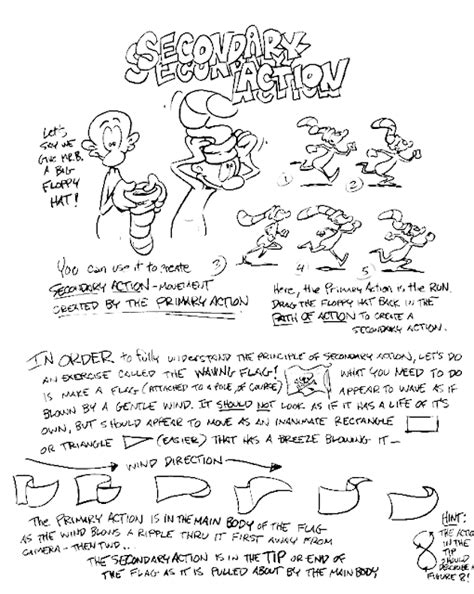 SECONDARY ACTION
Let's
SAY WE
GIVE MR.B.
A BIG
FLOPPY
HAT!
1
2
3
4
5
You can use it to create
SECONDARY ACTION - MOVEMENT
CREATED BY THE PRIMARY ACTION
Here, the Primary Action is the RUN.
DRAG THE FLOPPY HAT BACK IN THE
PATH OF ACTION TO CREATE A
SECONDARY ACTION.
IN ORDER to fully UNDERSTAND THE PRINCIPLE OF SECONDARY ACTION, LET'S DO
AN EXERCISE CALLED THE WAVING FLAG! WHAT YOU NEED TO DO
IS MAKE A FLAG (ATTACHED TO A POLE, OF COURSE) APPEAR TO WAVE AS IF
BLOWN BY A GENTLE WIND. IT SHOULD NOT LOOK AS IF IT HAS A LIFE OF IT'S
OWN, BUT SHOULD APPEAR TO MOVE AS AN INANIMATE RECTANGLE
OR TRIANGLE (EASIER) THAT HAS A BREEZE BLOWING IT —
WIND DIRECTION
The PRIMARY ACTION IS IN THE MAIN BODY OF THE FLAG
AS THE WIND BLOWS A RIPPLE THRU IT FIRST AWAY FROM
CAMERA - THEN TWD..
THE SECONDARY ACTION IS IN THE TIP OR END OF
THE FLAG AS IT IS PULLED ABOUT BY THE MAIN BODY
HINT:
THE ACTION
IN THE
TIP
SHOULD
DESCRIBE A
FIGURE 8!